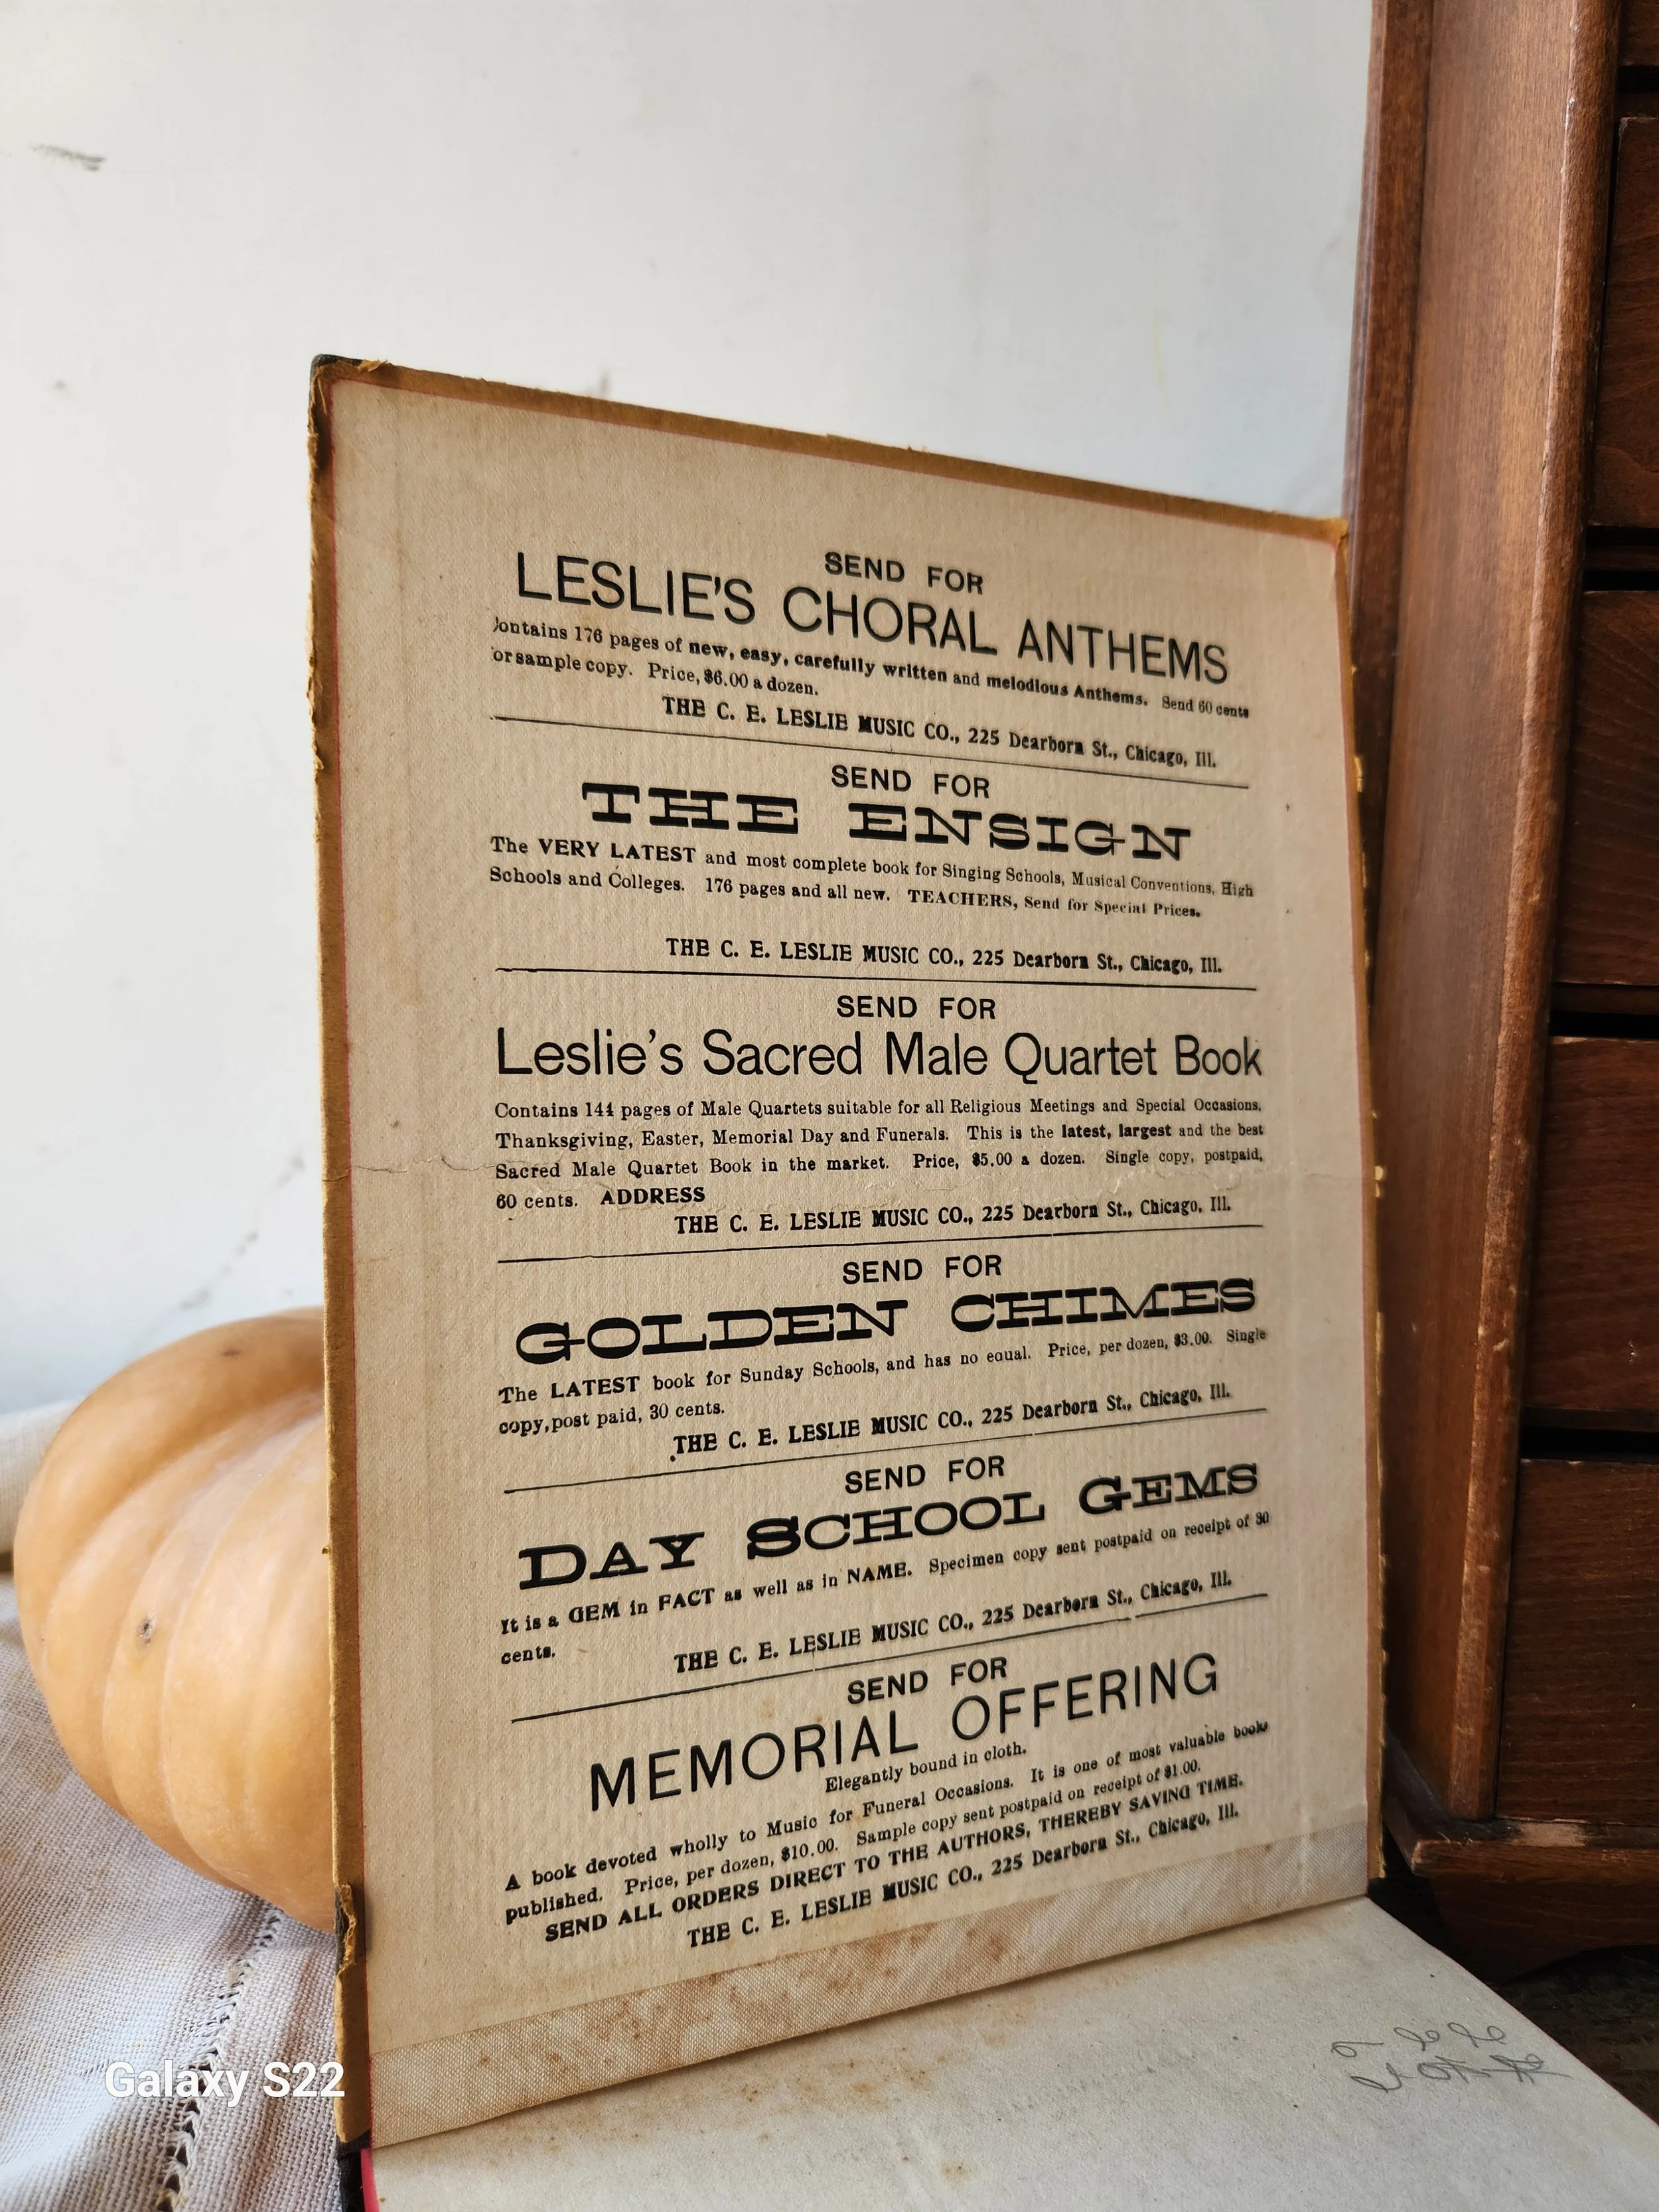 SEND FOR
LESLIE'S CHORAL ANTHEMS
Contains 176 pages of new, easy, carefully written and melodious Anthems. Send 60 cents
for sample copy. Price, $6.00 a dozen.
THE C. E. LESLIE MUSIC CO., 225 Dearborn St., Chicago, Ill.
SEND FOR
THE ENSIGN
The VERY LATEST and most complete book for Singing Schools, Musical Conventions, High
Schools and Colleges. 176 pages and all new. TEACHERS, Send for Special Prices.
THE C. E. LESLIE MUSIC CO., 225 Dearborn St., Chicago, Ill.
SEND FOR
Leslie's Sacred Male Quartet Book
Contains 144 pages of Male Quartets suitable for all Religious Meetings and Special Occasions,
Thanksgiving, Easter, Memorial Day and Funerals. This is the latest, largest and the best
Sacred Male Quartet Book in the market. Price, $5.00 a dozen. Single copy, postpaid,
60 cents. ADDRESS
THE C. E. LESLIE MUSIC CO., 225 Dearborn St., Chicago, Ill.
SEND FOR
GOLDEN CHIMES
The LATEST book for Sunday Schools, and has no equal. Price, per dozen, $3.00. Single
copy, post paid, 30 cents.
THE C. E. LESLIE MUSIC CO., 225 Dearborn St., Chicago, Ill.
SEND FOR
DAY SCHOOL GEMS
It is a GEM in FACT as well as in NAME. Specimen copy sent postpaid on receipt of 30
cents.
THE C. E. LESLIE MUSIC CO., 225 Dearborn St., Chicago, Ill.
SEND FOR
MEMORIAL OFFERING
Elegantly bound in cloth.
A book devoted wholly to Music for Funeral Occasions. It is one of most valuable books
published. Price, per dozen, $10.00. Sample copy sent postpaid on receipt of $1.00.
SEND ALL ORDERS DIRECT TO THE AUTHORS, THEREBY SAVING TIME.
THE C. E. LESLIE MUSIC CO., 225 Dearborn St., Chicago, Ill.
Galaxy S22